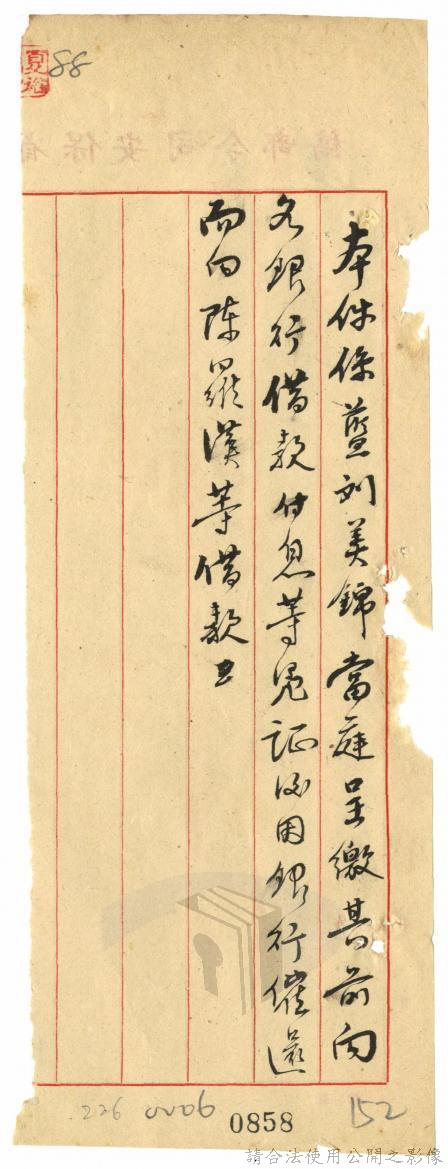 88
本件係藍刘美錦當庭呈繳其前向
各銀行借款付息等凭証後因銀行催還
而向陈羅漢等借款
226 0006
0858
152
請合法使用公開之影像